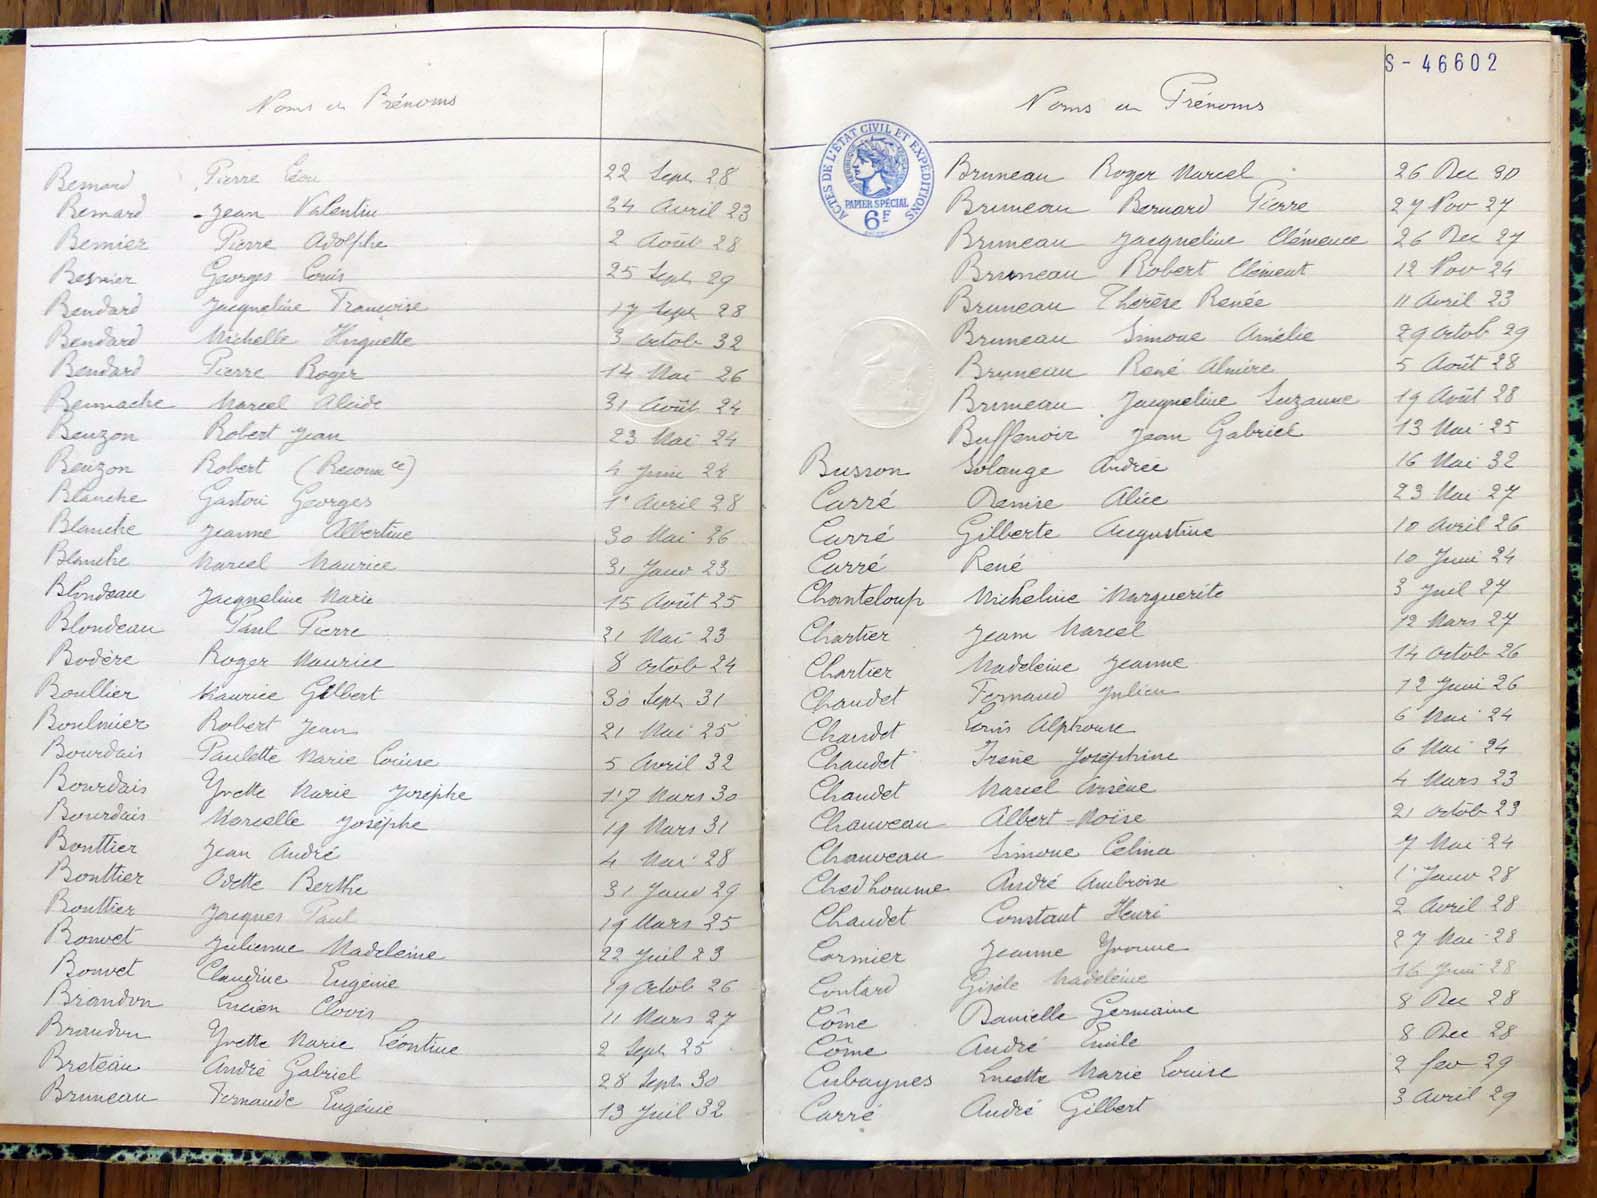 Noms et Prénoms
Bernard Pierre Léon 22 Sept 28
Bernard Jean Valentin 24 Avril 23
Bernier Pierre Adolphe 2 Août 28
Besnier Georges Louis 25 Sept 29
Beudard Jacqueline Françoise 17 Sept 28
Beudard Michelle Huguette 3 Octob 32
Beudard Pierre Roger 14 Mai 26
Marcel Alcide 31 Août 24
Beuzon Robert Jean 23 Mai 24
Beuzon Robert (Reconn ce) 4 Juin 24
Blanche Gaston Georges 1er Avril 28
Blanche Jeanne Albertine 30 Mai 26
Blanche Marcel Maurice 31 Janv 23
Blondeau Jacqueline Marie 15 Août 25
Blondeau Paul Pierre 21 Mai 23
Bodère Roger Maurice 8 Octob 24
Boullier Maurice Gilbert 30 Sept 31
Boulmier Robert Jean 21 Mai 25
Bourdais Paulette Marie Louise 5 Avril 32
Bourdais Yvette Marie Josephe 17 Mars 30
Bourdais Marcelle Josèphe 19 Mars 31
Bouttier Jean André 4 Mai 28
Bouttier Odette Berthe 31 Janv 29
Bouttier Jacques Paul 19 Mars 25
Bouvet Julienne Madeleine 22 Juil 23
Bouvet Claudine Eugénie 19 Octob 26
Brandon Lucien Clovis 11 Mars 27
Brandon Yvette Marie Léontine 2 Sept 25
Breteau André Gabriel 28 Sept 30
Bruneau Fernande Eugénie 13 Juil 32
S-46602
Noms et Prénoms
ACTES DE L'ÉTAT CIVIL ET EXPÉDITIONS
PAPIER SPÉCIAL
6F
Bruneau Roger Marcel 26 Dec 30
Bruneau Bernard Pierre 27 Nov 27
Bruneau Jacqueline Clémence 26 Dec 27
Bruneau Robert Clément 12 Nov 24
Bruneau Thérèse Renée 11 Avril 23
Bruneau Simone Amélie 29 Octob 29
Bruneau René Almire 5 Août 28
Bruneau Jacqueline Suzanne 19 Août 28
Buffenoir Jean Gabriel 13 Mai 25
Busson Solange Andrée 16 Mai 32
Carré Denise Alice 23 Mai 27
Carré Gilberte Augustine 10 Avril 26
Carré René 10 Juin 24
Chanteloup Micheline Marguerite 3 Juil 27
Chartier Jean Marcel 12 Mars 27
Chartier Madeleine Jeanne 14 Octob 26
Chaudet Fernand Julien 12 Juin 26
Chaudet Louis Alphonse 6 Mai 24
Chaudet Irène Joséphine 6 Mai 24
Chaudet Marcel Arsène 4 Mars 23
Chauveau Albert Moïse 21 Octob 23
Chauveau Simone Celina 7 Mai 24
Chedhomme André Ambroise 1er Janv 28
Chaudet Constant Henri 2 Avril 28
Cormier Jeanne Yvonne 27 Mai 28
Coutard Gisèle Madeleine 16 Juin 28
Côme Danielle Germaine 8 Dec 28
Côme André Emile 8 Dec 28
Cubaynes Lucette Marie Louise 2 fev 29
Carré André Gilbert 3 Avril 29